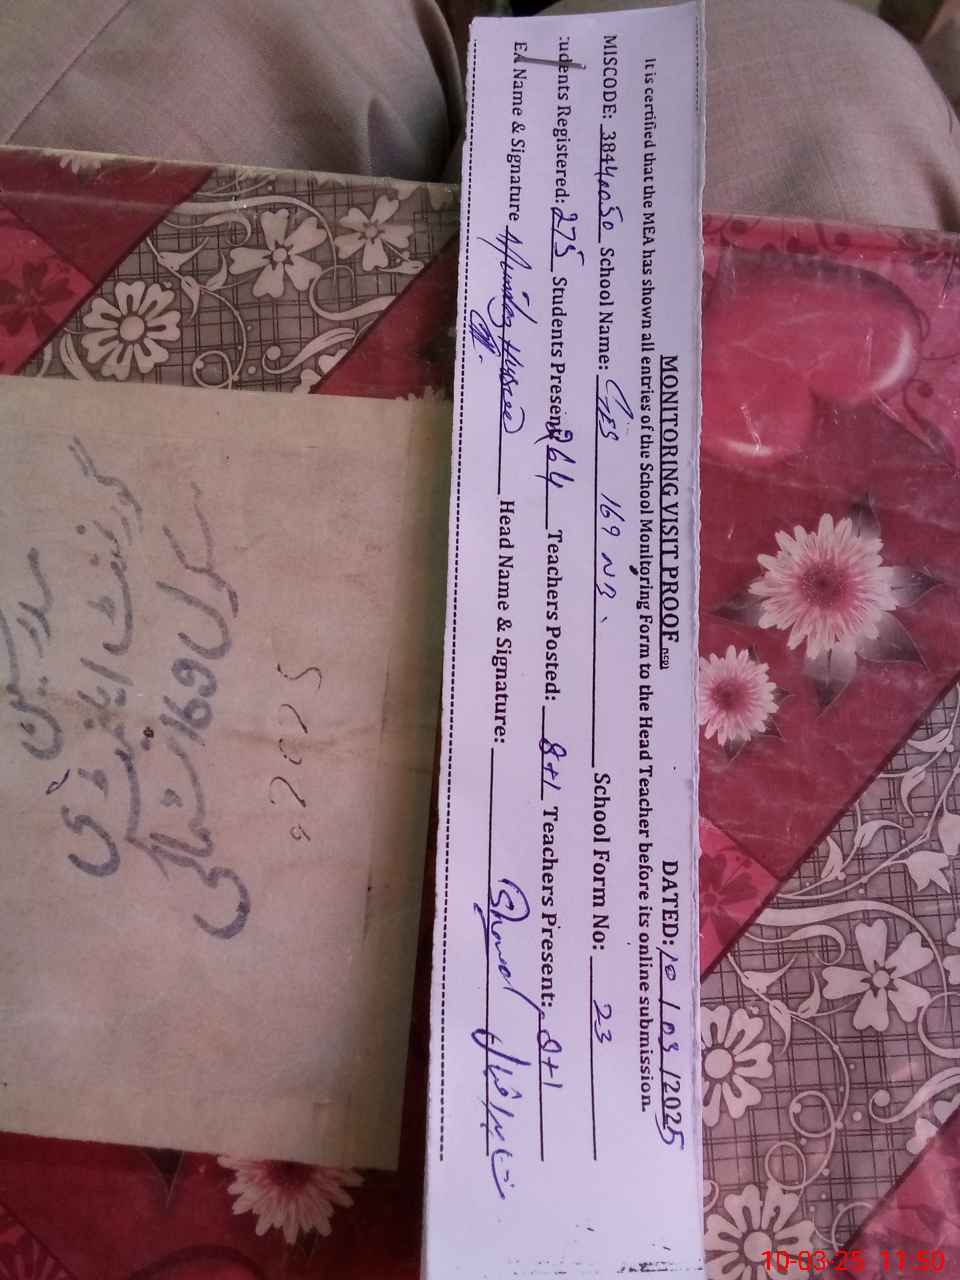 MONITORING VISIT PROOF DATED: 10/03/2025
It is certified that the MEA has shown all entries of the School Monitoring Form to the Head Teacher before its online submission.
MISCODE: 38440050 School Name: GES 169 NB. School Form No: 23
udents Registered: 275 Students Present 264 Teachers Posted: 8+1 Teachers Present: 8+1
EA Name & Signature Head Name & Signature:
گورنمنٹ ایلیمنٹری
سکول 169 شمالی
10-03-25 11:50